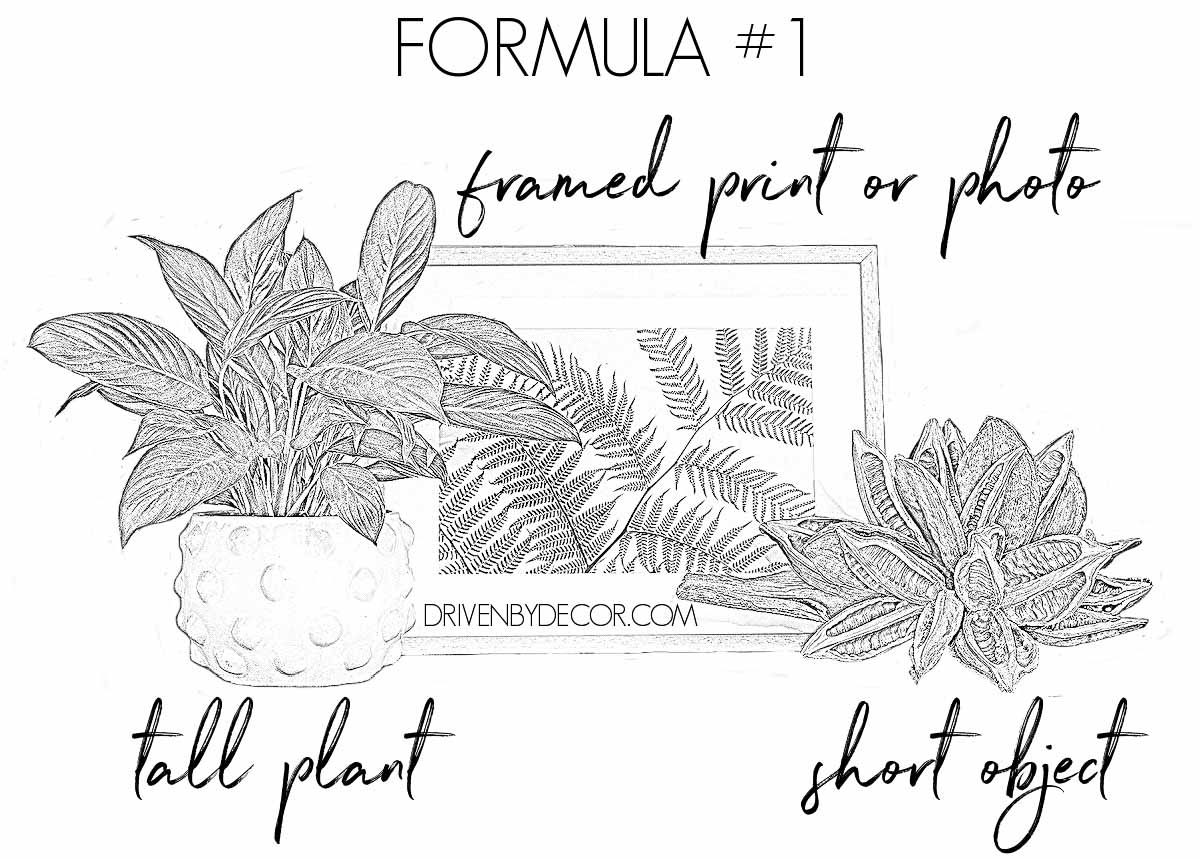 FORMULA #1
framed print or photo
DRIVENBYDECOR.COM
tall plant
short object